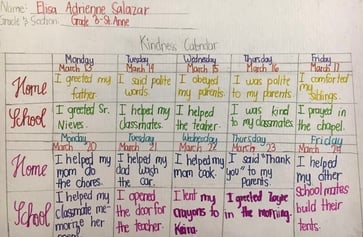 Name: Elisa Adrienne Salazar
Grade & Section: Grade 3-St. Anne
Kindness Calendar
Monday Tuesday Wednesday Thursday Friday
March 13 March 14 March 15 March 16 March 17
Home
I greeted my father.
I said polite words.
I obeyed my parents.
I was polite to my parents.
I comforted my siblings.
School
I greeted Sr. Nieves.
I helped my classmates.
I helped the teacher.
I was kind to my classmates.
I prayed in the chapel.
Monday Tuesday Wednesday Thursday Friday
March 20 March 21 March 22 March 23 March 24
Home
I helped my mom do the chores.
I helped my dad wash the car.
I helped my mom cook.
I said "Thank you" to my parents.
I helped my schoolmates build their tents.
School
I helped my classmate
I opened the door for the teacher.
I lent my crayons to Keira.
I greeted in the morning.